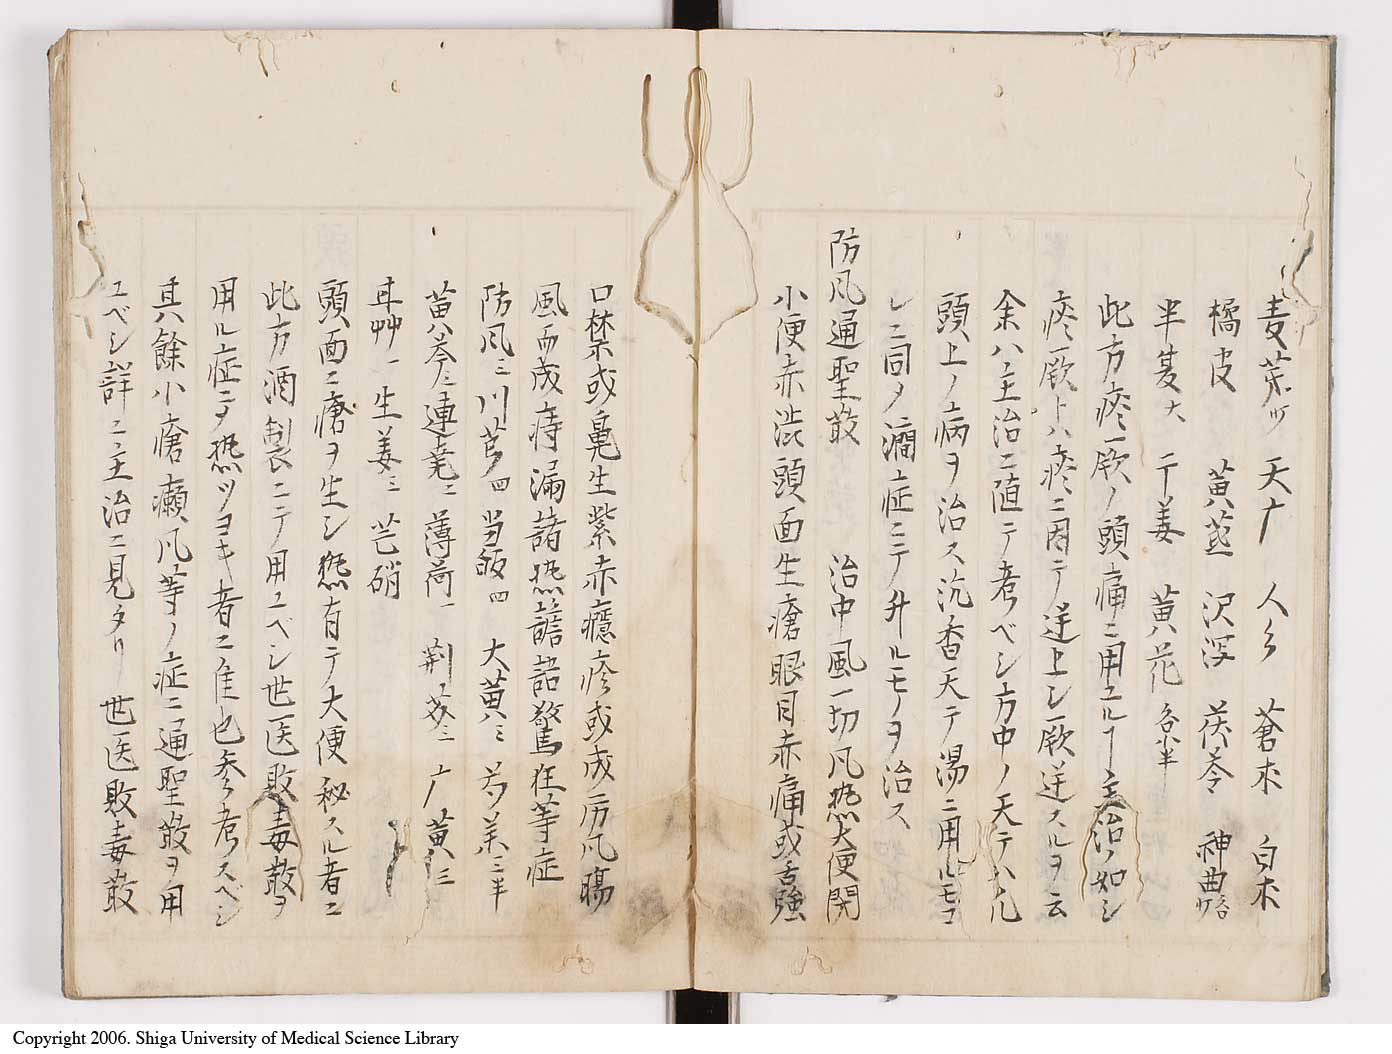 麦芽ツ 天广 人参 蒼朮 白朮
橘皮 黄茋 沢泻 茯苓 神曲
半夏大 干姜 黄花 各小半
此方痰厥ノ頭痛ニ用ユル丁主治ノ如シ
痰厥トハ痰ニ因テ逆上シ厥逆スルヲ云
余ハ主治ニ随テ考ベシ方中ノ天テハ凡
頭上ノ病ヲ治ス沉香天テ湯ニ用ルモコ
レニ同メ癇症ニテ升ルモノヲ治ス
防凨通聖散 治中風一切凨熱大便閉
小便赤渋頭面生瘡眼目赤痛或舌強
口禁或鼻生紫赤癮疹或成疠凨瘍
風而成痔漏諸熱譫語驚狂等症
防凨三 川芎四 当皈四 大黄三 芍 三半
黄芩三 連 二 薄荷一 荊 二 广黄三
耳艸一 生姜三 芒硝
頭面ニ瘡ヲ生シ熱有テ大便秘スル者ニ
此方酒製ニテ用ユベシ世医敗毒散ヲ
用ル症ニヲ熱ツヨキ者ニ隹也参考スベシ
其餘小瘡癩凨等ノ症ニ通聖散ヲ用
ユベシ詳ニ主治ニ見タリ世医敗毒散
Copyright 2006. Shiga University of Medical Science Library